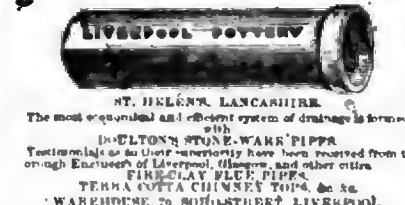 LIVERPOOL POTTERY
ST. HELEN'S, LANCASHIRE.
The most economical and efficient system of drainage is formed
with
DOULTON'S STONE-WARE PIPES.
Testimonials as to their superiority have been received from t
orough Engineers of Liverpool, Glasgow, and other cities
FIRE-CLAY FLUE PIPES.
TERRA COTTA CHIMNEY TOPS, &c. &c.
WAREHOUSE, SOHO-STREET LIVERPOOL.